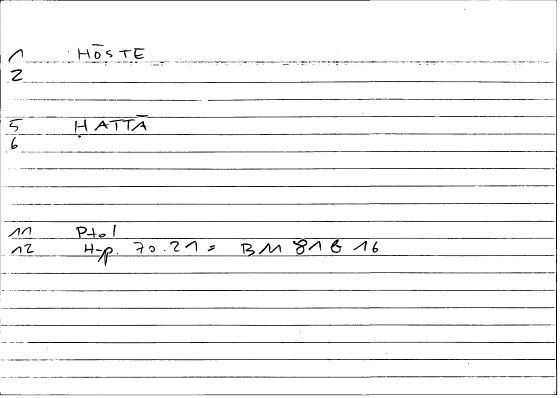 1 HŌSTE
2
5 ḤATTĀ
6
11 Ptol
12 Hyp. 70.21 = BM 81 b 16